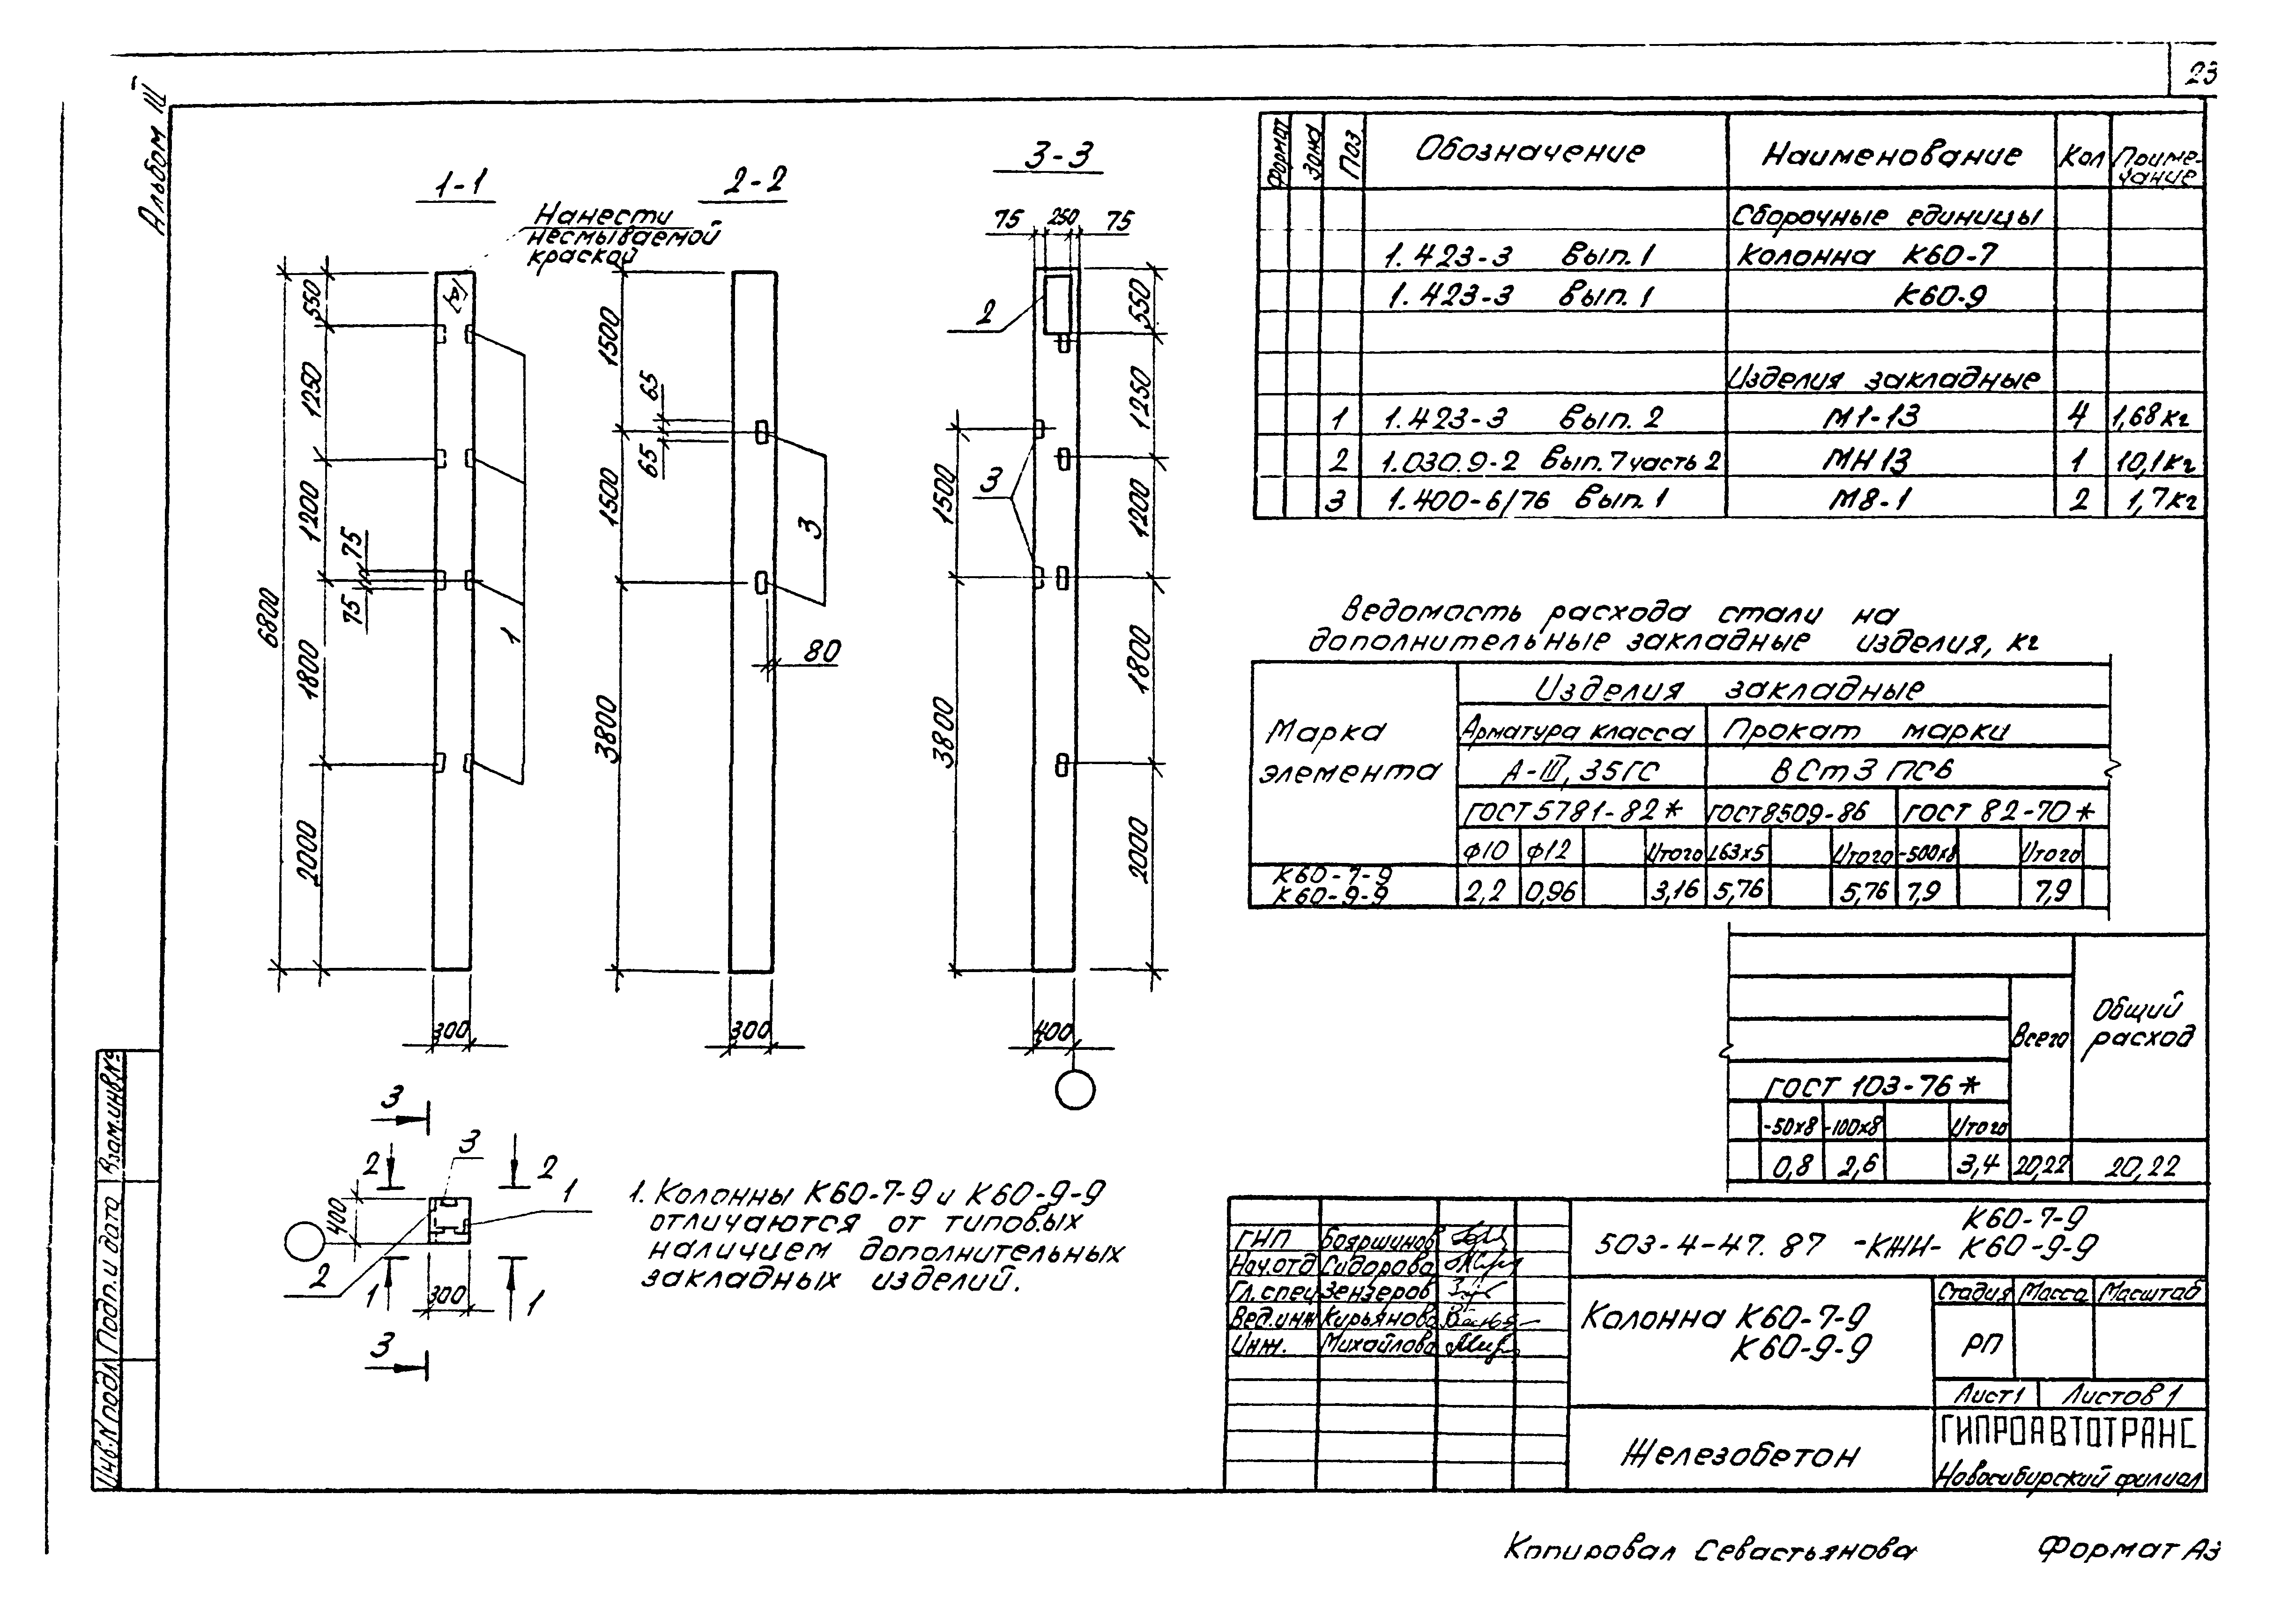 23
Альбом III
1-1
2-2
3-3
Нанести
несмываемой
краской
75 250 75
6800
550
1250
1200
75
75
1800
2000
1
300
1500
65
65
1500
3800
3
80
300
2
3
1500
3800
550
1250
1200
1800
2000
400
3
2
3
2
1
400
2
1
300
1
3
1. Колонны К60-7-9 и К60-9-9
отличаются от типовых
наличием дополнительных
закладных изделий.
Формат Зона Поз. Обозначение Наименование Кол Приме-
чание
Сборочные единицы
1.423-3 Вып.1 Колонна К60-7
1.423-3 Вып.1 К60-9
Изделия закладные
1 1.423-3 Вып.2 М1-13 4 1,68кг
2 1.030.9-2 Вып.7 часть 2 МН13 1 10,1кг
3 1.400-6/76 Вып.1 М8-1 2 1,7кг
Ведомость расхода стали на
дополнительные закладные изделия, кг
Марка
элемента
Изделия закладные
Арматура класса Прокат марки
А-III, 35ГС ВСт3 ПС6
ГОСТ 5781-82* ГОСТ 8509-86 ГОСТ 82-70*
Ф10 Ф12 Итого L63х5 Итого -500х8 Итого
К60-7-9
К60-9-9
2,2 0,96 3,16 5,76 5,76 7,9 7,9
Всего
Общий
расход
ГОСТ 103-76*
-50х8 -100х8 Итого
0,8 2,6 3,4 20,22 20,22
ГИП Бояршинов
Нач.отд Сидорова
Гл.спец Зензеров
Вед.инж Кирьянова
Инж. Михайлова
503-4-47.87 -КЖИ- К60-7-9
К60-9-9
Колонна К60-7-9
К60-9-9
Стадия Масса Масштаб
РП
Лист 1 Листов 1
Железобетон
ГИПРОАВТОТРАНС
Новосибирский филиал
Инв.N подл. Подп. и дата Взам.инв.№
Копировал Севастьянова Формат А3